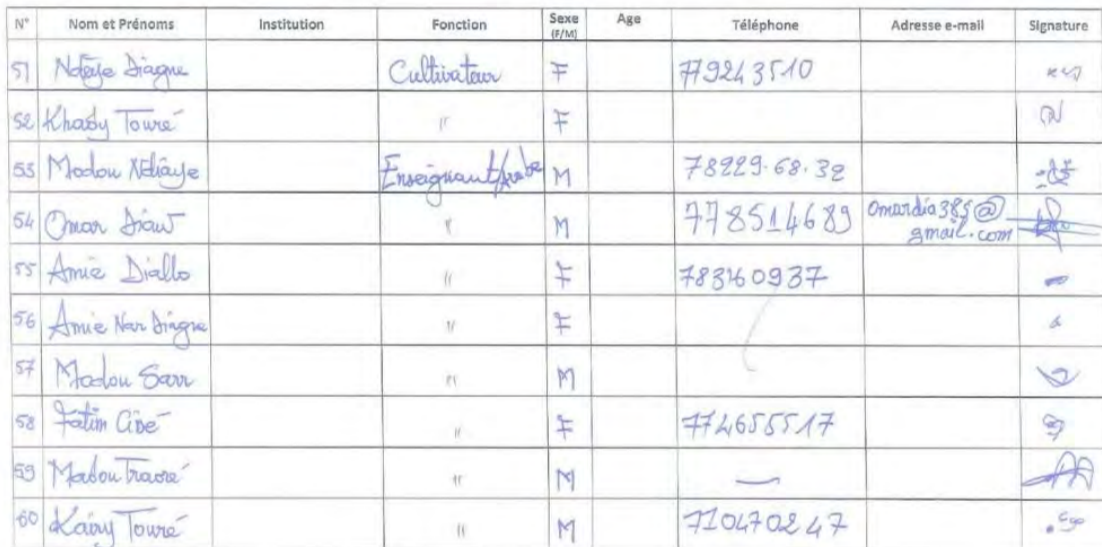 N° Nom et Prénoms Institution Fonction Sexe (F/M) Age Téléphone Adresse e-mail Signature
51 Ndèye Diagne Cultivateur F 779243510
52 Khady Touré " F
53 Modou Ndiaye Enseignant/Arabe M 78229.68.32
54 Omar Diaw " M 778514689 Omardia385@
gmail.com
55 Amie Diallo " F 783160937
56 Amie Nar Diagne " F
57 Modou Sarr " M
58 Fatim Cissé " F 774655517
59 Madou Traoré " M —
60 Touré " M 710470247